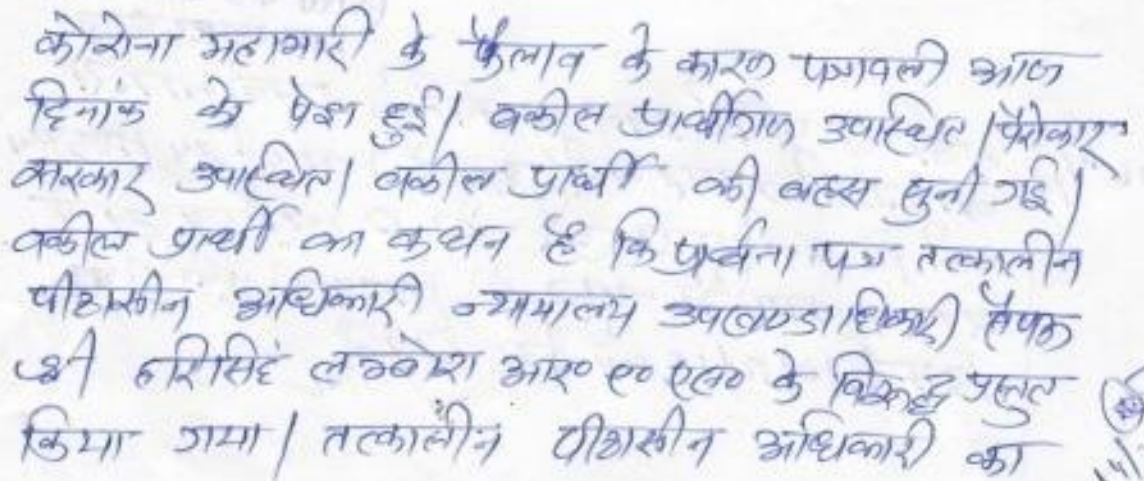 कोरोना महामारी के फैलाव के कारण पत्रावली आज
दिनांक को पेश हुई। वकील प्रार्थीगण उपस्थित। पैरोकार
सरकार उपस्थित। वकील प्रार्थी की बहस सुनी गई।
वकील प्रार्थी का कथन है कि प्रार्थना पत्र तत्कालीन
पीठासीन अधिकारी न्यायालय उपखण्डाधिकारी
श्री हरिसिंह आर० ए० एस० के विरूद्ध प्रस्तुत
किया गया। तत्कालीन पीठासीन अधिकारी का